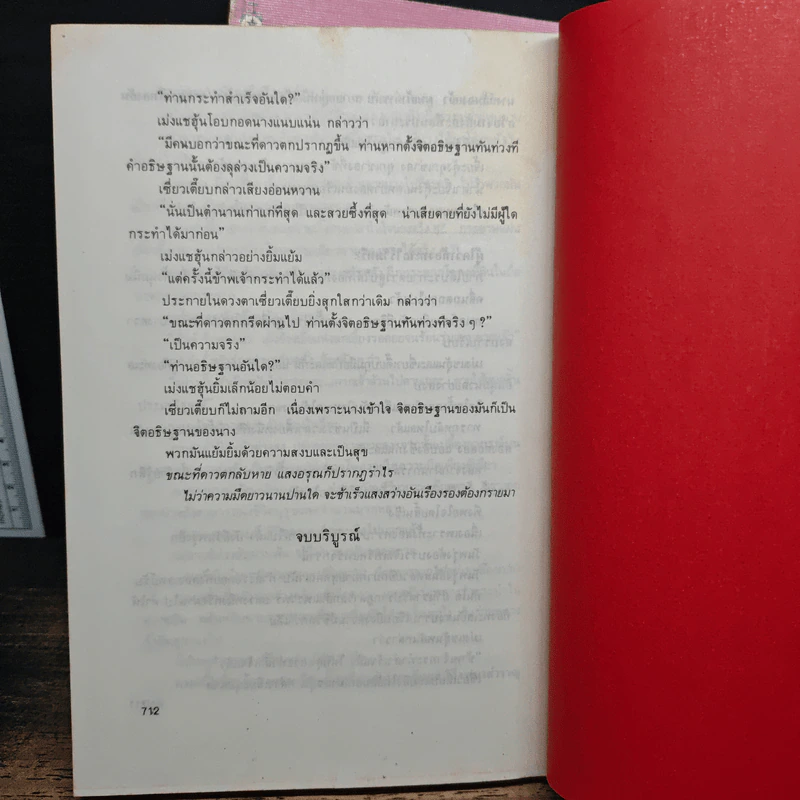 “ท่านกระทำสำเร็จอันใด?”
เม่งแชฮุ้นโอบกอดนางแนบแน่น กล่าวว่า
“มีคนบอกว่าขณะที่ดาวตกปรากฏขึ้น ท่านหากตั้งจิตอธิษฐานทันท่วงที
คำอธิษฐานนั้นต้องลุล่วงเป็นความจริง”
เซี่ยวเตี๊ยบกล่าวเสียงอ่อนหวาน
“นั่นเป็นตำนานเก่าแก่ที่สุด และสวยซึ้งที่สุด น่าเสียดายที่ยังไม่มีผู้ใด
กระทำได้มาก่อน”
เม่งแชฮุ้นกล่าวอย่างยิ้มแย้ม
“แต่ครั้งนี้ข้าพเจ้ากระทำได้แล้ว”
ประกายในดวงตาเซี่ยวเตี๊ยบยิ่งสุกใสกว่าเดิม กล่าวว่า
“ขณะที่ดาวตกกรีดผ่านไป ท่านตั้งจิตอธิษฐานทันท่วงทีจริง ๆ ?”
“เป็นความจริง”
“ท่านอธิษฐานอันใด?”
เม่งแชฮุ้นยิ้มเล็กน้อยไม่ตอบคำ
เซี่ยวเตี๊ยบก็ไม่ถามอีก เนื่องเพราะนางเข้าใจ จิตอธิษฐานของมันก็เป็น
จิตอธิษฐานของนาง
พวกมันแย้มยิ้มด้วยความสงบและเป็นสุข
ขณะที่ดาวตกลับหาย แสงอรุณก็ปรากฏรำไร
ไม่ว่าความมืดยาวนานปานใด จะช้าเร็วแสงสว่างอันเรืองรองต้องกรายมา
จบบริบูรณ์
712